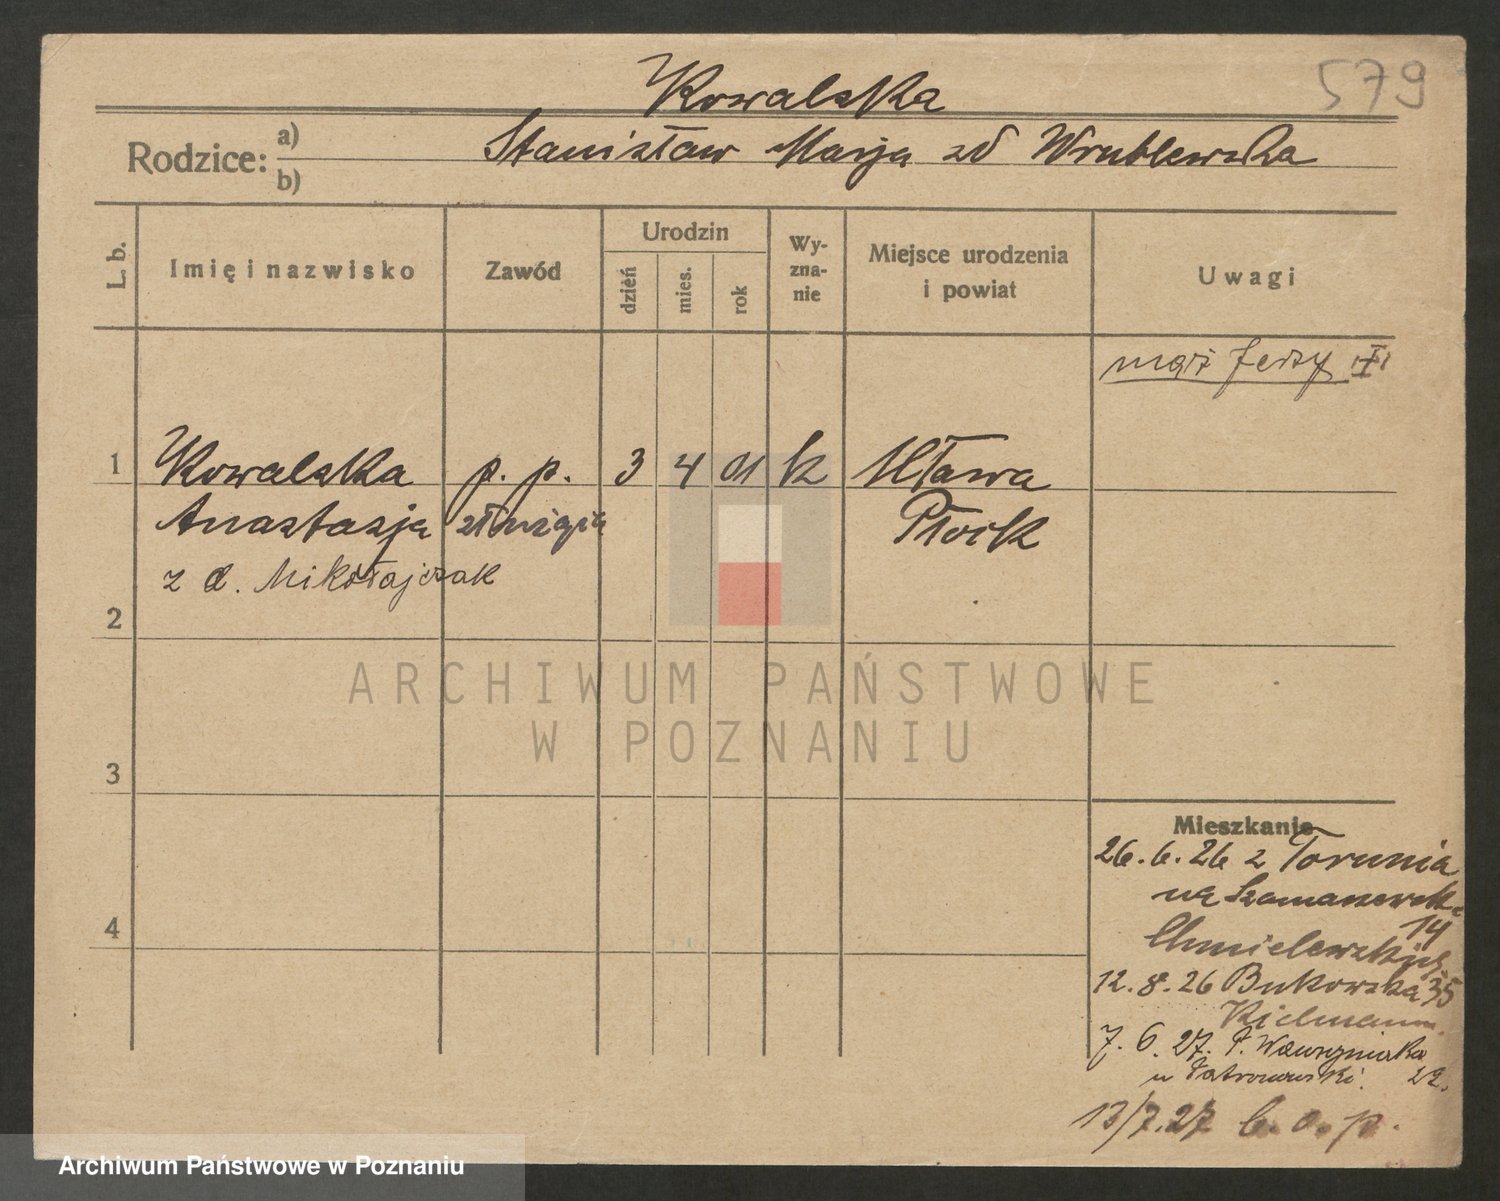 579
Kowalska
Rodzice: a) b)
Stanisław Marja zd Wrublewska
L. b.
Imię i nazwisko
Zawód
Urodzin
dzień
mies.
rok
Wy-
zna-
nie
Miejsce urodzenia
i powiat
Uwagi
mąż Jerzy
1 Kowalska p. p. 3 4 01 k Mława
Anastazja służąca Płock
z d. Mikołajczak
2
3
4
ARCHIWUM PAŃSTWOWE
W POZNANIU
Mieszkanie
26. 6. 26 z Torunia
na
14
Chmielewskich
12. 8. 26 Bukowska 35
7. 6. 27. P. Wawrzyniaka
u 22.
13/7.27 b. o. p.
Archiwum Państwowe w Poznaniu